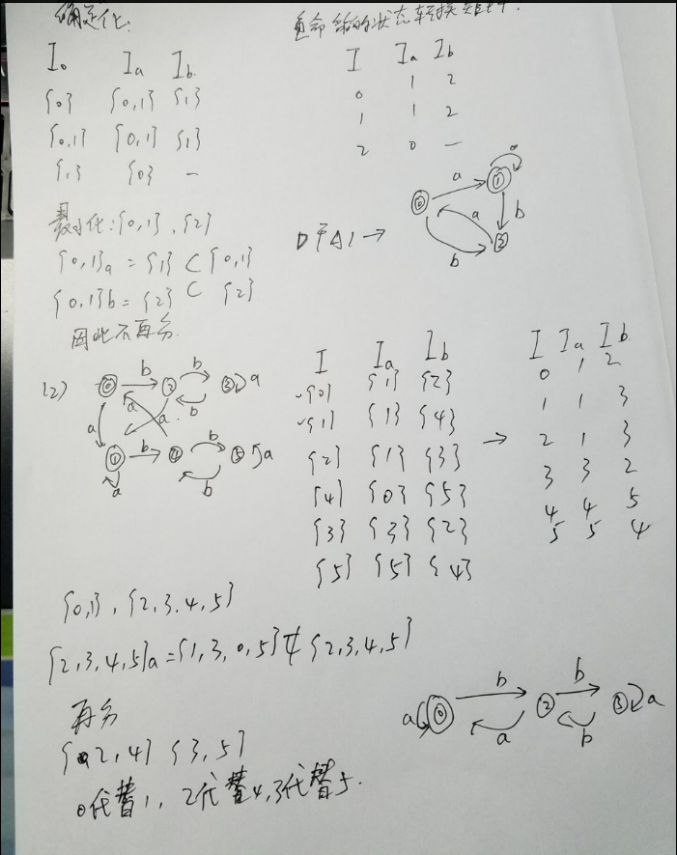 确定化:
I₀ Iₐ I_b
{0} {0,1} {1}
{0,1} {0,1} {1}
{1} {0} —
最小化: {0,1}, {2}
{0,1}a = {1} ⊂ {0,1}
{0,1}b = {2} ⊂ {2}
因此不再分.
状态转换
I Iₐ I_b
0 1 2
1 1 2
2 0 —
DFA
a
a
b
b
(2)
0 b 2 b 3 a
b
a a a
1 b 4 b 5 a
a b
I Iₐ I_b
{0} {1} {2}
{1} {1} {4}
{2} {1} {3}
{4} {0} {5}
{3} {3} {2}
{5} {5} {4}
→
I Iₐ I_b
0 1 2
1 1 3
2 1 3
3 3 2
4 4 5
5 5 4
{0,1}, {2,3,4,5}
{2,3,4,5}a = {1,3,0,5} ⊄ {2,3,4,5}
再分
{2,4} {3,5}
0代替1, 2代替4, 3代替5.
a 0 b 2 b 3 a
a b